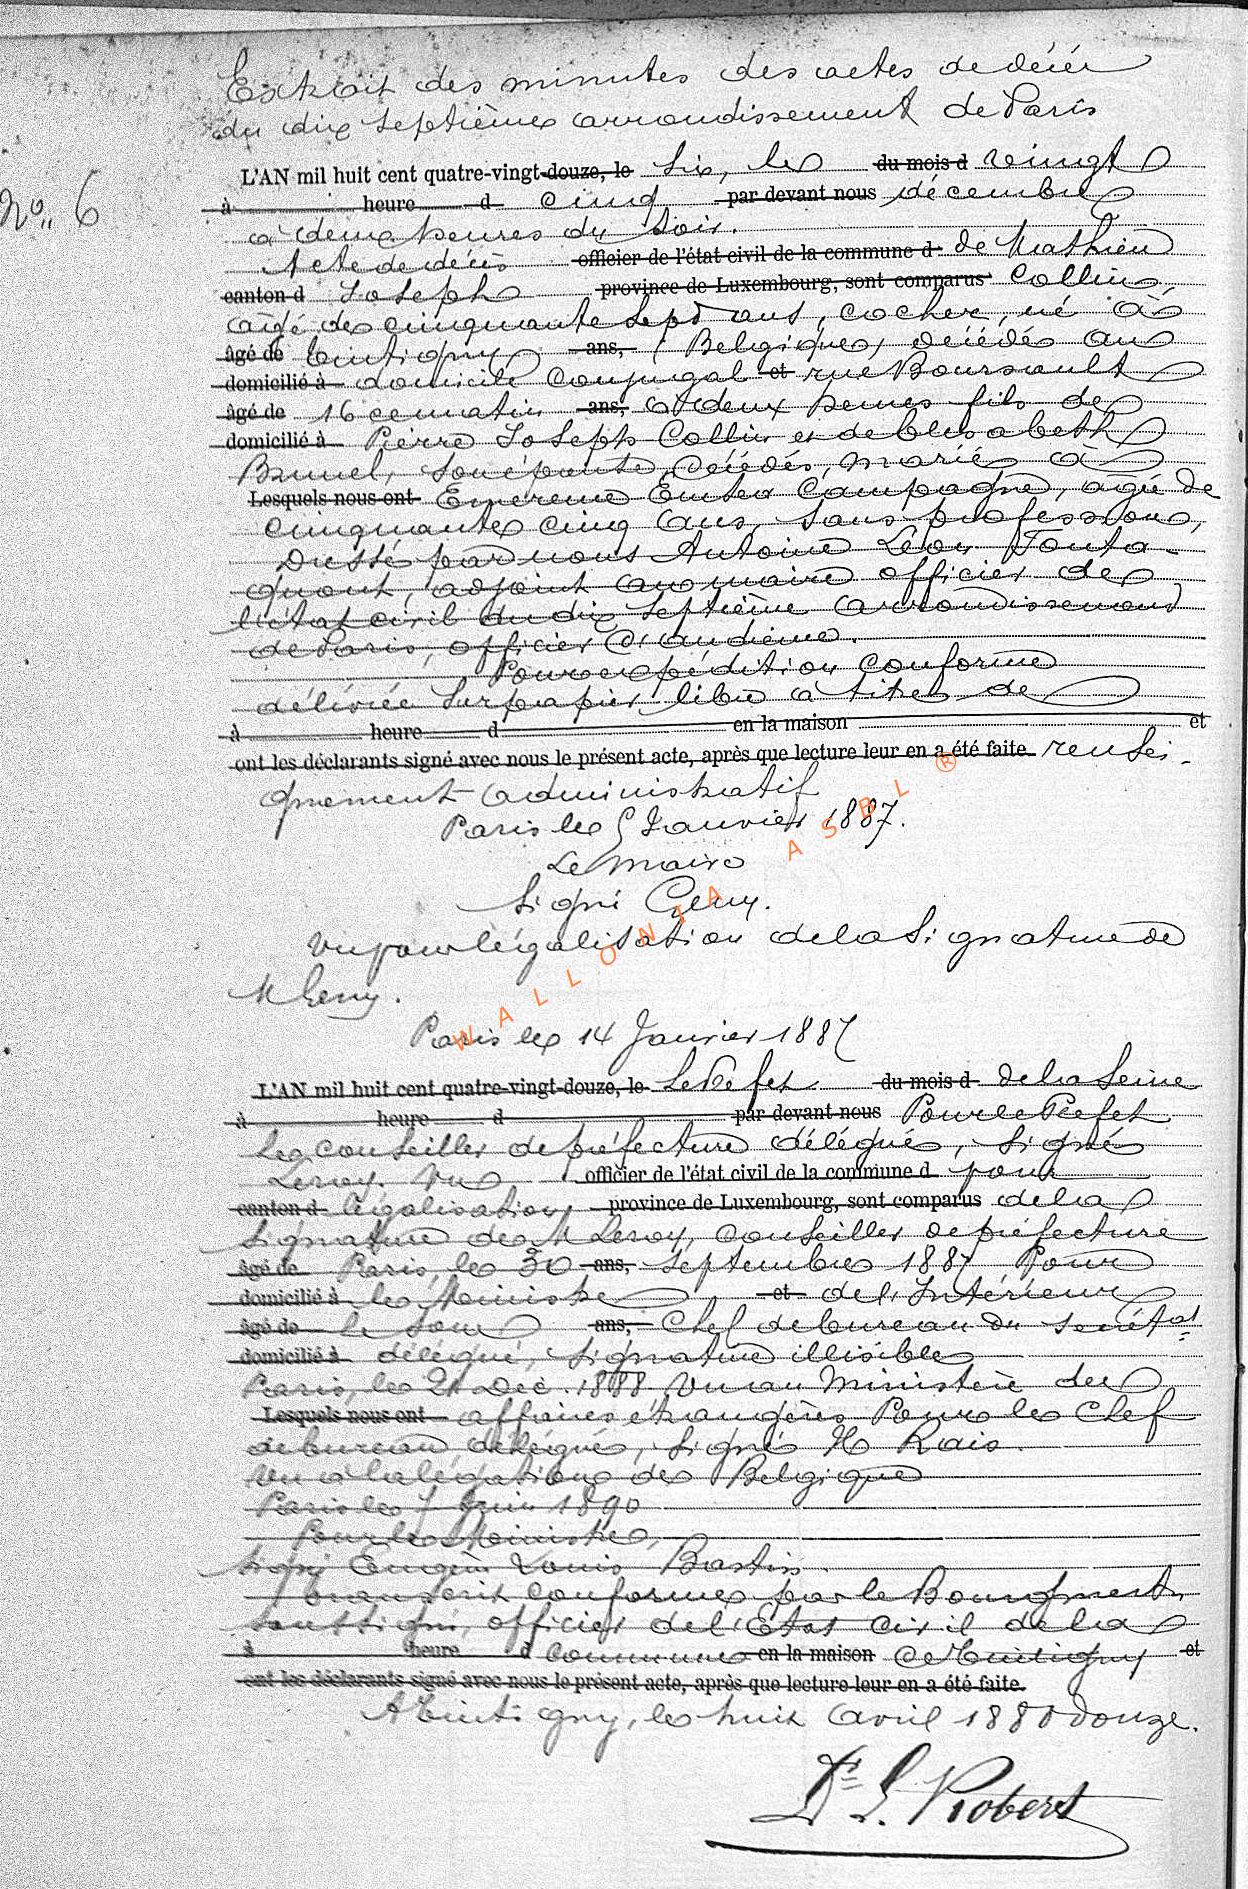 Extrait des minutes des actes de décés
du dix septième arrondissement de Paris
No. 6
L'AN mil huit cent quatre-vingt-douze, le six, le du mois d vingt
à heure d cinq par devant nous décembre
à deux heures du soir.
Acte de décès officier de l'état civil de la commune d de Mathieu
canton d Joseph province de Luxembourg, sont comparus Collin,
âgé de cinquante sept ans, cocher, né à
âgé de Tintigny ans, (Belgique) décédé au
domicilié à domicile conjugal et rue Boursault
âgé de 16 ce matin ans, à deux heures fils de
domicilié à Pierre Joseph Collin et de Elisabeth
Brunel, son épouse, décédés, marié à
Lesquels nous ont Campagne, âgée de
cinquante cinq ans, sans profession,
Dressé par nous Antoine Léon
adjoint au maire officier de
l'état civil du dix septième arrondissement
de Paris, officier d'académie.
Pour expédition conforme
délivrée sur papier libre à titre de
à heure d en la maison et
ont les déclarants signé avec nous le présent acte, après que lecture leur en a été faite rensei-
gnement administratif
Paris le 5 Janvier 1887.
Le Maire
Signé
Vu pour légalisation de la signature de
M
Paris le 14 Janvier 1887
L'AN mil huit cent quatre-vingt-douze, le Le Préfet du mois d de la Seine
à heure d par devant nous Pour le Préfet
Le conseiller de préfecture délégué, signé
Leroy. Vu officier de l'état civil de la commune d pour
canton d légalisation province de Luxembourg, sont comparus de la
signature de M Leroy, conseiller de préfecture
âgé de Paris, le 30 ans, septembre 1887 Pour
domicilié à le Ministre et de l'Intérieur
âgé de le sous ans, Chef de bureau du secrétat
domicilié à délégué, signature illisible
Paris, le 21 Déc. 1888 Vu au Ministère des
Lesquels nous ont affaires étrangères Pour le chef
de bureau délégué, signé
Vu à la légation de Belgique
Paris le 7 Juin 1890
Pour le Ministre,
signé Eugène Louis Bastin.
Transcrit conforme par le Bourgmestre
soussigné, officier de l'Etat civil de la
à heure d commune en la maison de Tintigny et
ont les déclarants signé avec nous le présent acte, après que lecture leur en a été faite.
A Tintigny, le huit avril 1880 douze.
Dr L. Robert
WALLONIA ASBL ®